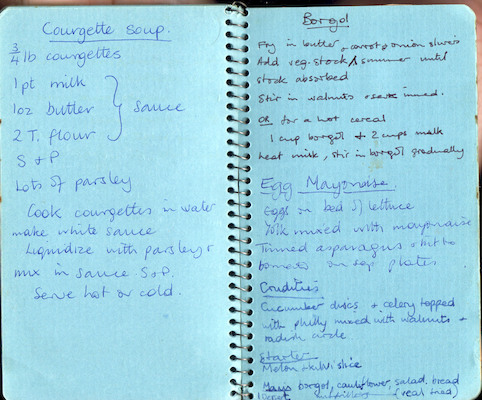 Courgette soup.
3/4 lb courgettes
1 pt milk
1oz butter } sauce
2 T. flour
S + P
Lots of parsley
Cook courgettes in water
make white sauce
Liquidize with parsley +
mix in sauce S+P.
Serve hot or cold.
Borgol
Fry in butter + carrot + onion slivers
Add veg. stock + simmer until
stock absorbed
Stir in walnuts +
OR for a hot cereal
1 cup borgol + 2 cups milk
heat milk, stir in borgol gradually
Egg Mayonaise.
Eggs on bed of lettuce
Yolk mixed with mayonaise
Tinned asparagus +
on sep plates
Cucumber discs + celery topped
with philly mixed with walnuts +
radish circle
Starter
Melon + kiwi slice
borgol, cauliflower, salad. bread